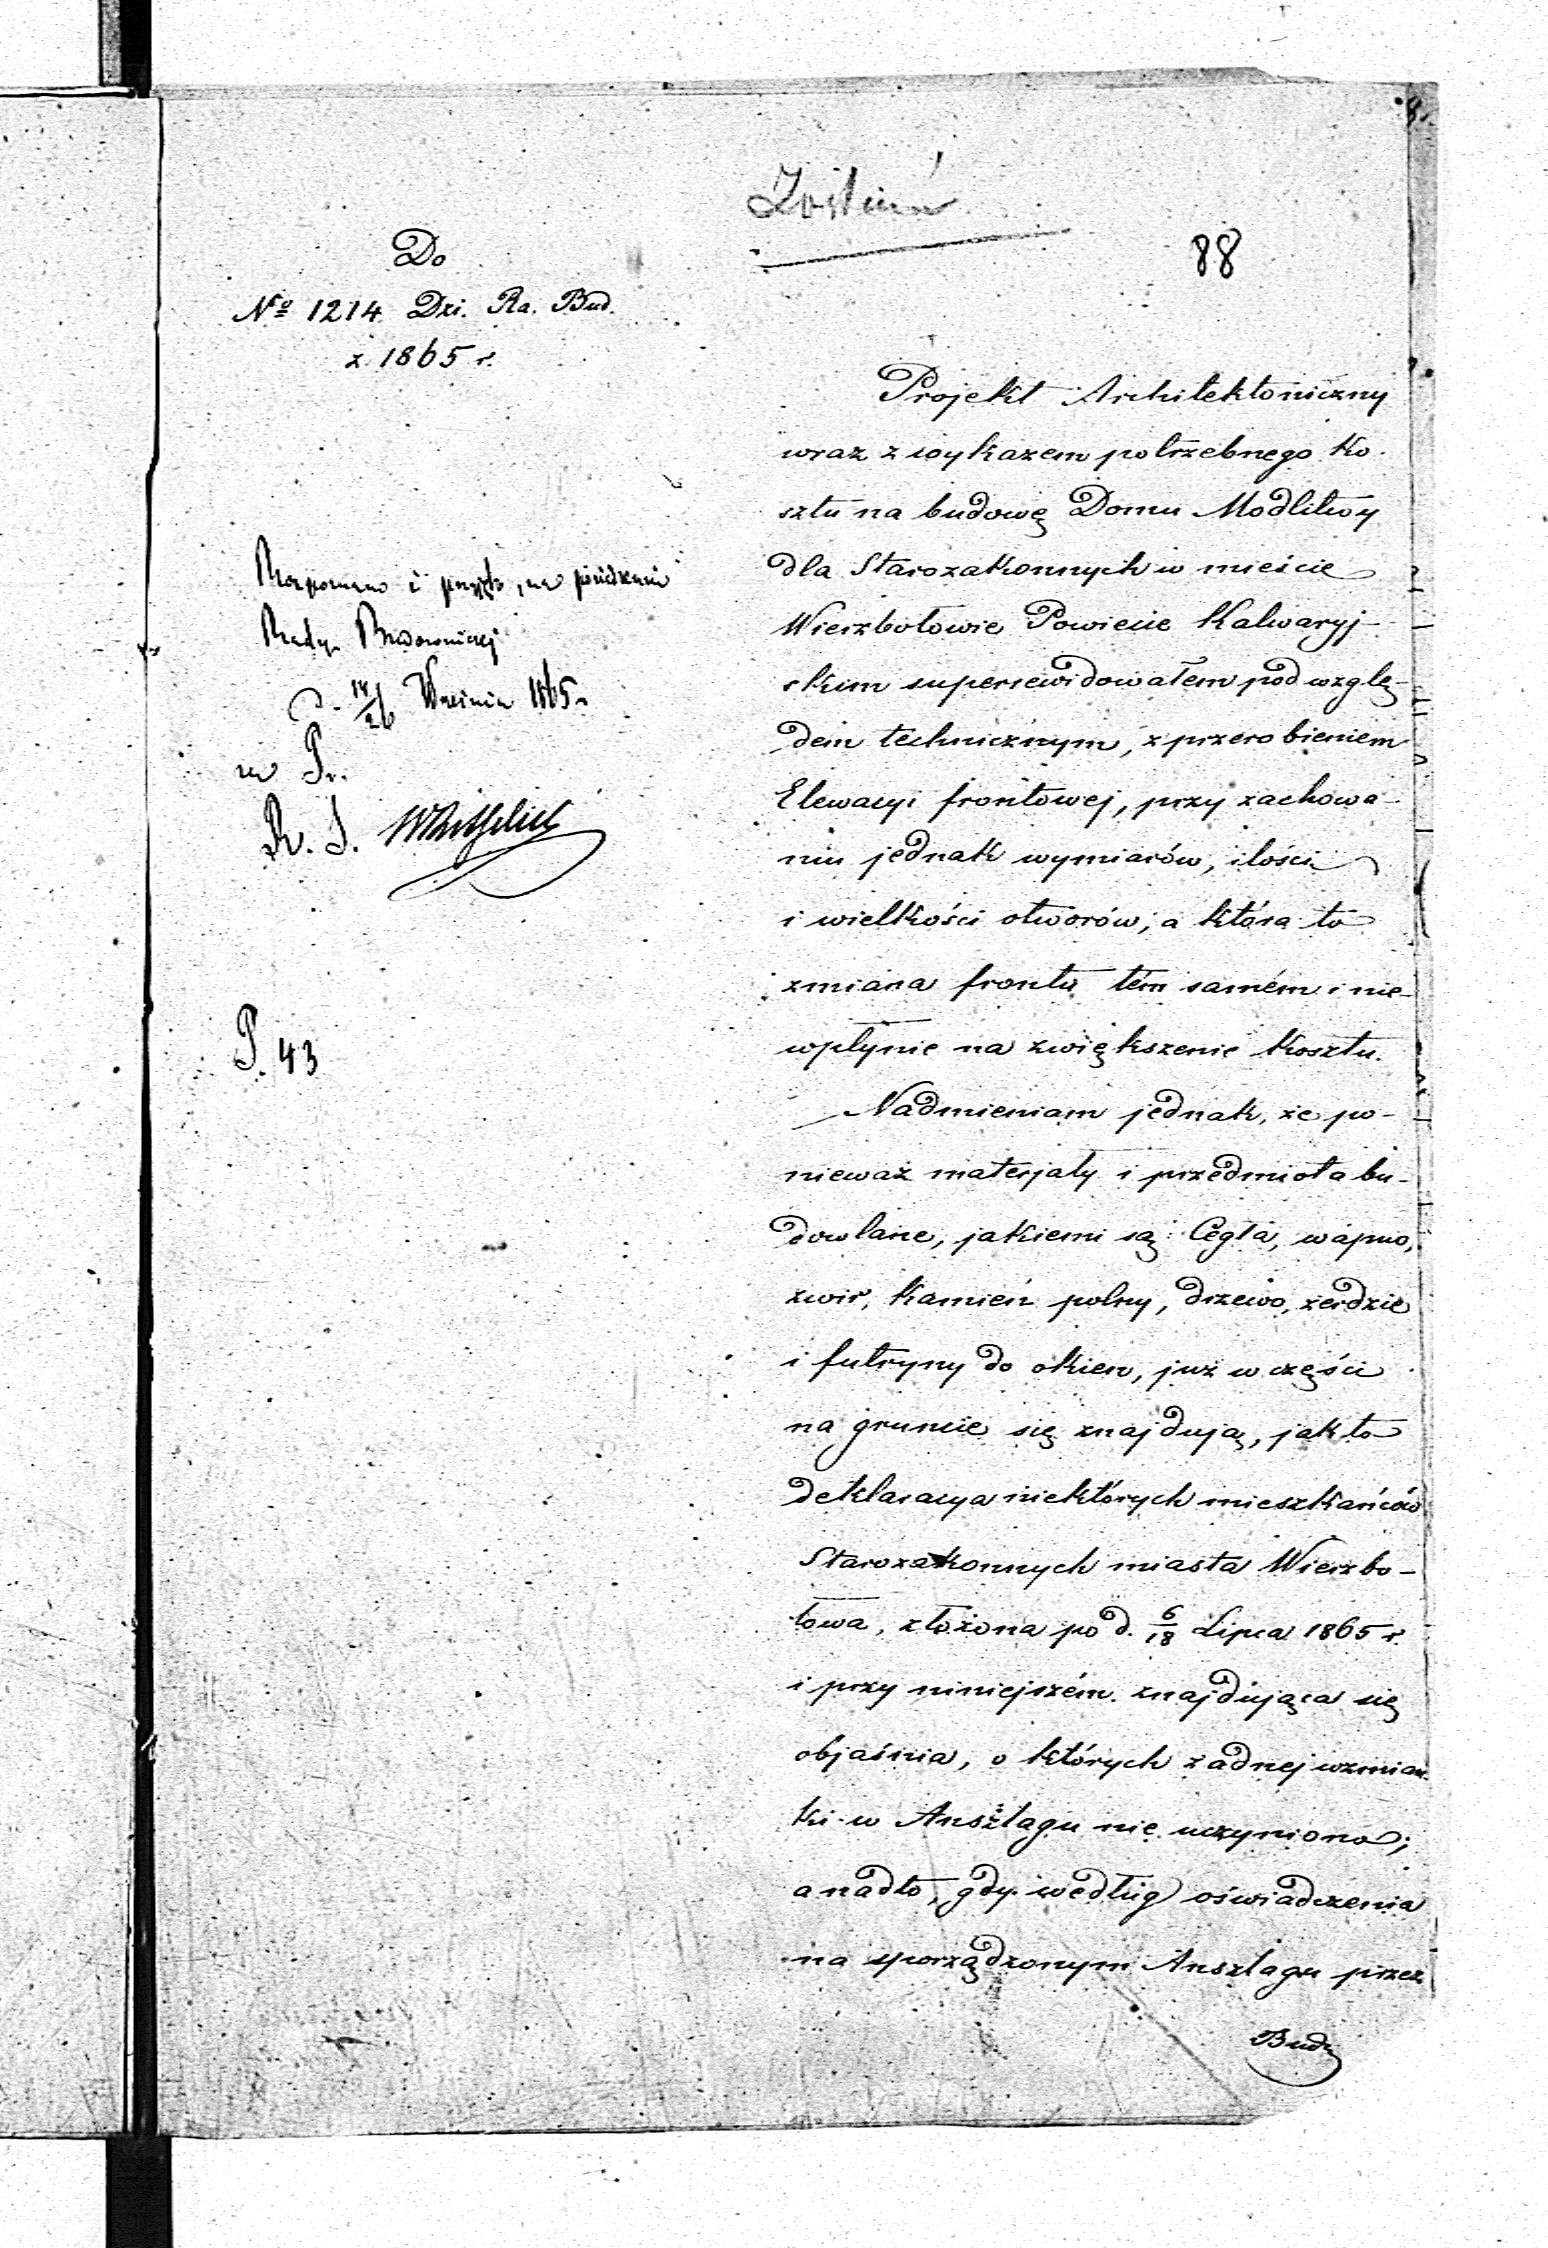 88
Do
№ 1214 Dzi. Ra. Bud.
z 1865 r.
Rozpoznano i przyjęto, na posiedzeniu
Rady Budowniczej
d. 14/26 Września 1865 r.
R. S.
P. 43
Projekt Architektoniczny
wraz z wykazem potrzebnego Ko-
sztu na budowę Domu Modlitwy
dla Starozakonnych w mieście
Wierzbołowie Powiecie Kalwaryj-
skim superrewidowałem pod wzglę-
dem technicznym, z przerobieniem
Elewacyi frontowej, przy zachowa-
niu jednak wymiarów, ilości
i wielkości otworów, a która to
zmiana frontu tém samém i nie-
wpłynie na zwiększenie Kosztu.
Nadmieniam jednak, że po-
nieważ materjały i przedmiota bu-
dowlane, jakiemi są: Cegła, wapno,
żwir, Kamień polny, drzewo, żerdzie
i futryny do okien, już w części
na gruncie się znajdują, jak to
deklaracya niektórych mieszkańców
Starozakonnych miasta Wierzbo-
łowa, złożona pod d. 6/18 Lipca 1865 r.
i przy niniejszém znajdująca się
objaśnia, o których żadnej wzmian-
ki w Anszlagu nie uczyniono;
a nadto, gdy według oświadczenia
na sporządzonym Anszlagu przez
Budo